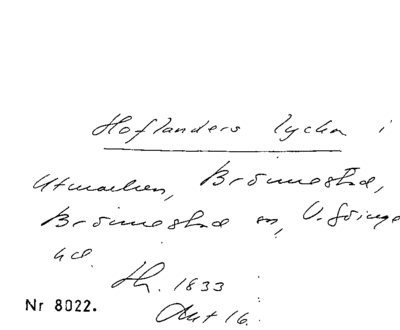 Hoflanders lycka i
Utmarken, Brönnestad,
Brönnestad sn, V. Göinge
hd.
Th. 1833
Akt 16.
Nr 8022.